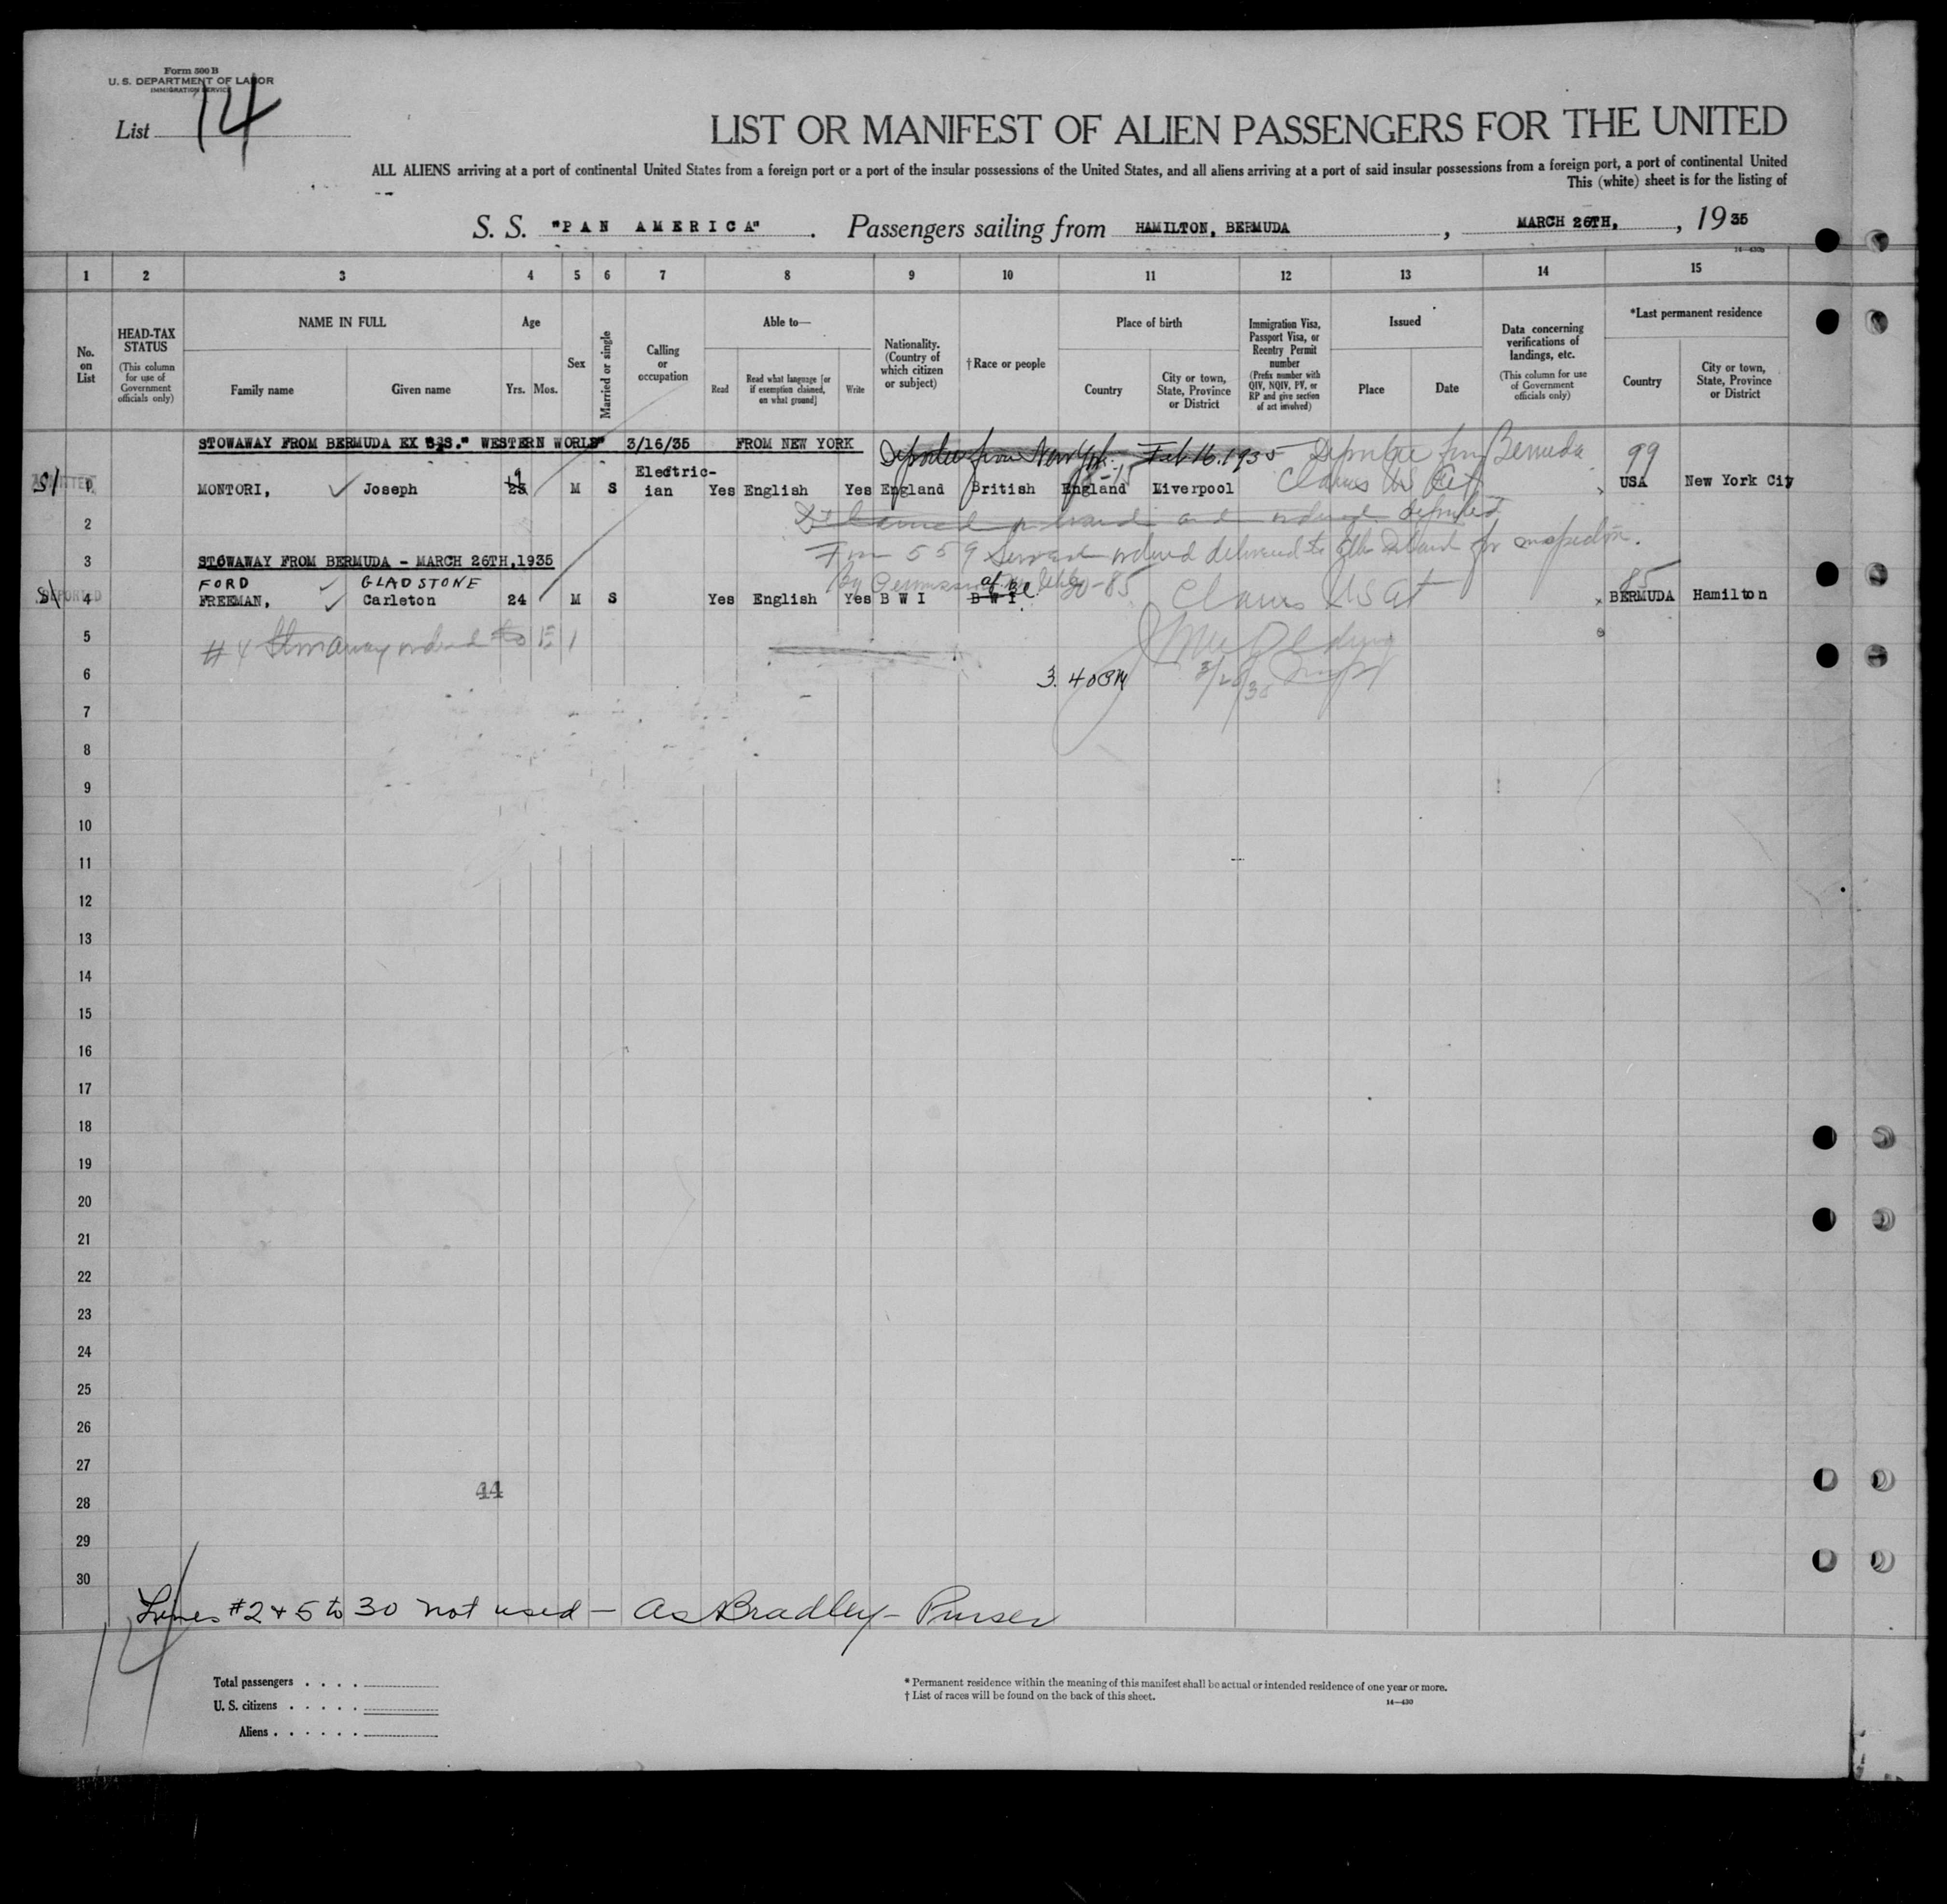 Form 500 B
U. S. DEPARTMENT OF LABOR
IMMIGRATION SERVICE
List 14
LIST OR MANIFEST OF ALIEN PASSENGERS FOR THE UNITED
ALL ALIENS arriving at a port of continental United States from a foreign port or a port of the insular possessions of the United States, and all aliens arriving at a port of said insular possessions from a foreign port, a port of continental United
This (white) sheet is for the listing of
S. S. "PAN AMERICA". Passengers sailing from HAMILTON, BERMUDA, MARCH 26TH, , 1935
14—430b
1 2 3 4 5 6 7 8 9 10 11 12 13 14 15
No. on List
HEAD-TAX STATUS (This column for use of Government officials only)
NAME IN FULL
Family name Given name
Age
Yrs. Mos.
Sex
Married or single
Calling or occupation
Able to—
Read Read what language [or if exemption claimed, on what ground] Write
Nationality. (Country of which citizen or subject)
†Race or people
Place of birth
Country City or town, State, Province or District
Immigration Visa, Passport Visa, or Reentry Permit number (Prefix number with QIV, NQIV, PV, or RP and give section of act involved)
Issued
Place Date
Data concerning verifications of landings, etc. (This column for use of Government officials only)
*Last permanent residence
Country City or town, State, Province or District
STOWAWAY FROM BERMUDA EX S.S." WESTERN WORLD" 3/16/35 FROM NEW YORK Deported from New York Feb 16. 1935 Deportee from Bermuda 99
SI ADMITTED 1 MONTORI, Joseph M S Electric-ian Yes English Yes England British England Liverpool Claims US Cit USA New York City
2
and ordered deported
3 STOWAWAY FROM BERMUDA - MARCH 26TH, 1935
Form 559 Served ordered delivered to Ellis Island for inspection.
FORD GLADSTONE af. bl 85
SI DEPORTED 4 FREEMAN, Carleton 24 M S Yes English Yes B W I B W I. Claims US Cit BERMUDA Hamilton
5 #4 Stowaway ordered to E I
6 3.40PM
7
8
9
10
11
12
13
14
15
16
17
18
19
20
21
22
23
24
25
26
27
44
28
29
30
Lines #2 & 5 to 30 not used — AsBradley — Purser
14
Total passengers . . . .
U. S. citizens . . . . .
Aliens . . . . . .
* Permanent residence within the meaning of this manifest shall be actual or intended residence of one year or more.
† List of races will be found on the back of this sheet.
14—430